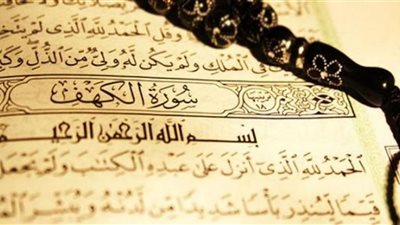 وَقُلِ ٱلْحَمْدُ لِلَّهِ ٱلَّذِى لَمْ يَتَّخِذْ
فِى ٱلْمُلْكِ وَلَمْ يَكُن لَّهُۥ وَلِىٌّ مِّنَ ٱلذُّلِّ وَكَبِّ
سُورَةُ الكَهْفِ
بِسْمِ اللَّهِ الرَّحْمَٰنِ الرَّحِيمِ
ٱلْحَمْدُ لِلَّهِ ٱلَّذِىٓ أَنزَلَ عَلَىٰ عَبْدِهِ ٱلْكِتَٰبَ وَلَمْ يَجْعَل
قَيِّمًا لِّيُنذِرَ بَأْسًا شَدِيدًا مِّن لَّدُنْهُ وَيُبَشِّرَ